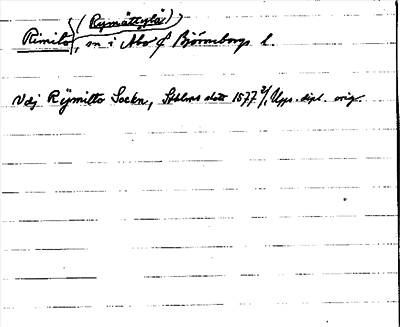 (Rymättylä)
Rimito, sn i Åbo o. Björneborgs l.
Vdj Rÿmitto Sockn, Stkhms slott 1577 2/1, Upps. dipl. orig.